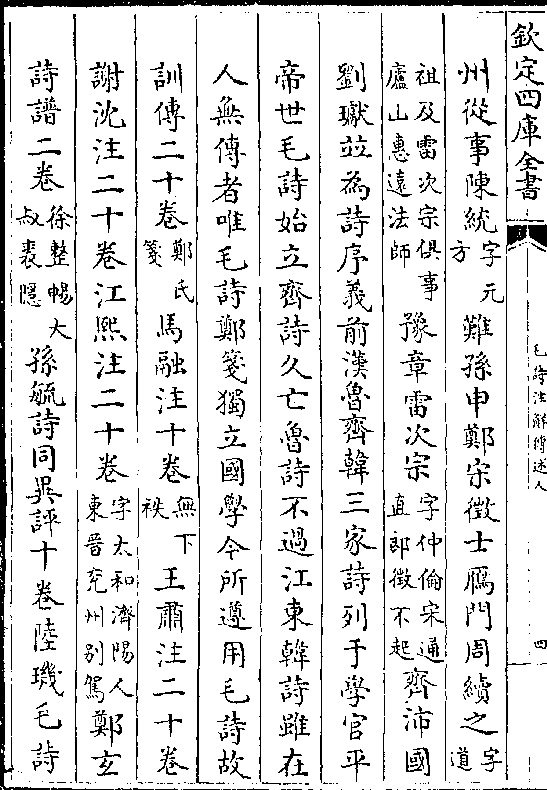 欽定四庫全書
毛詩注解傳述人
四
州從事陳統字元方難孫申鄭宋徵士鴈門周續之字道
祖及雷次宗俱事廬山惠遠法師豫章雷次宗字仲倫宋通直郎徵不起齊沛國
劉瓛並為詩序義前漢魯齊韓三家詩列于學官平
帝世毛詩始立齊詩久亡魯詩不過江東韓詩雖在
人無傳者唯毛詩鄭箋獨立國學今所遵用毛詩故
訓傳二十卷鄭氏箋馬融注十卷無下袟王肅注二十卷
謝沈注二十卷江熙注二十卷字太和濟陽人東晉兖州别駕鄭玄
詩譜二卷徐整暢大叔裘隱孫毓詩同異評十卷陸璣毛詩